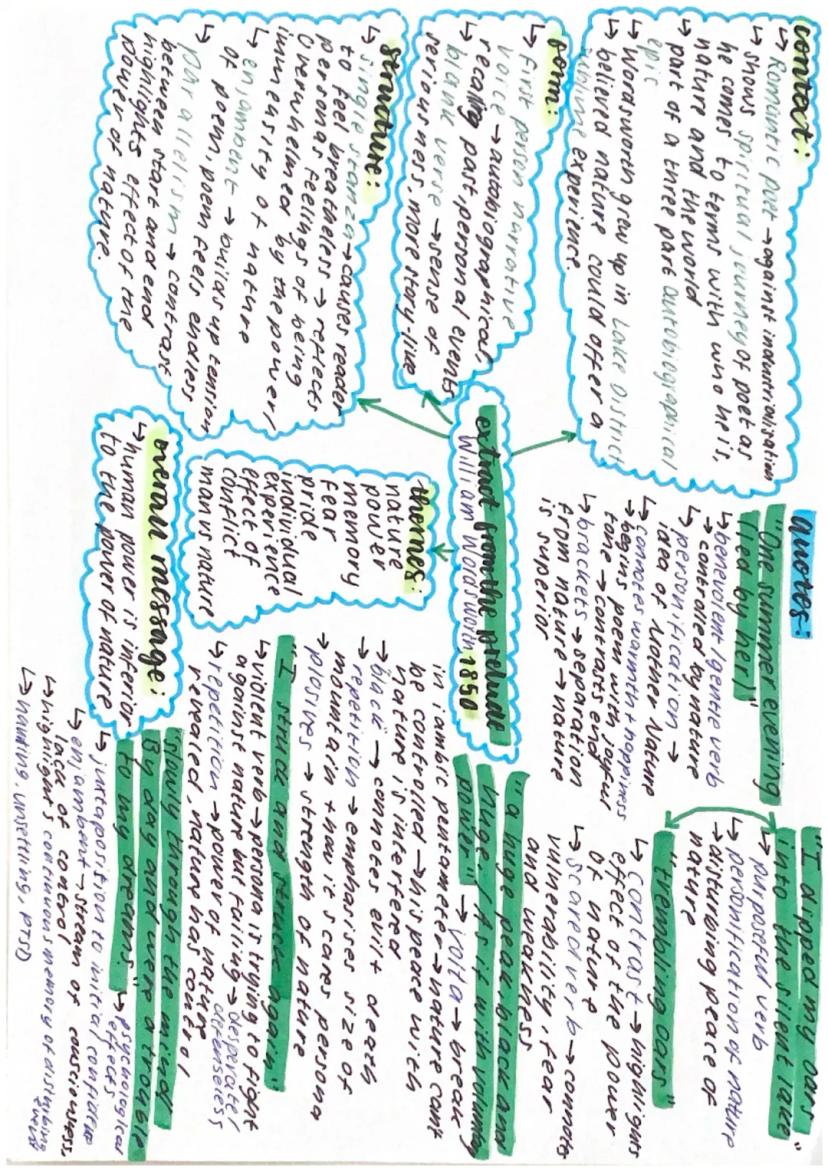 context:
↳ Romantic poet → against industrialisation
↳ shows spiritual journey of poet as
he comes to terms with who he is,
nature and the world
↳ part of a three part autobiographical
epic
↳ Wordsworth grew up in Lake District
↳ believed nature could offer a
sublime experience.
form:
↳ first person narrative
voice → autobiographical,
recalling past, personal events
↳ blank verse → sense of
seriousness, more story-like
structure:
↳ single stanza → causes reader
to feel breathless → reflects
persona's feelings of being
overwhelmed by the power/
immensity of nature
↳ enjambent → builds up tension
of poem, poem feels endless
↳ parallelism → contrast
between start and end
highlights effect of the
power of nature
extract from the prelude
William Wordsworth, 1850
themes:
nature
power
memory
fear
pride
individual
experience
effect of
conflict
man vs nature
overall message:
↳ human power is inferior
to the power of nature
quotes:
"One summer evening
(led by her)"
↳ benevolent gentle verb
→ controlled by nature
↳ personification →
idea of Mother Nature
↳ connotes warmth + happiness
→ begins poem with joyful
tone → contrasts end
↳ brackets → separation
from nature → nature
is superior
"I dipped my oars
into the silent lake"
↳ purposeful verb
↳ personification of nature
→ disturbing peace of
nature
"trembling oars"
↳ contrast → highlights
effect of the power
of nature
↳ scared verb → connotes
vulnerability, fear
and weakness
"a huge peak, black and
huge / As if with voluntary
power" → volta → break
in iambic pentameter → nature cant
be controlled → his peace with
nature is interfered
↳ "black" → connotes evil + death
↳ repetition → emphasises size of
mountain + how it scares persona
↳ plosives → strength of nature
"I struck and struck again"
↳ violent verb → persona is trying to fight
against nature but failing → desperate/
defenseless
↳ repetition → power of nature
revealed, nature has control
"slowly through the mind
By day and were a trouble
to my dreams" → psychological
effects
↳ juxtaposition to initial confidence
↳ enjambent → stream of consciousness,
lack of control
↳ highlights continuous memory of disturbing
event
↳ haunting, unsettling, PTSD